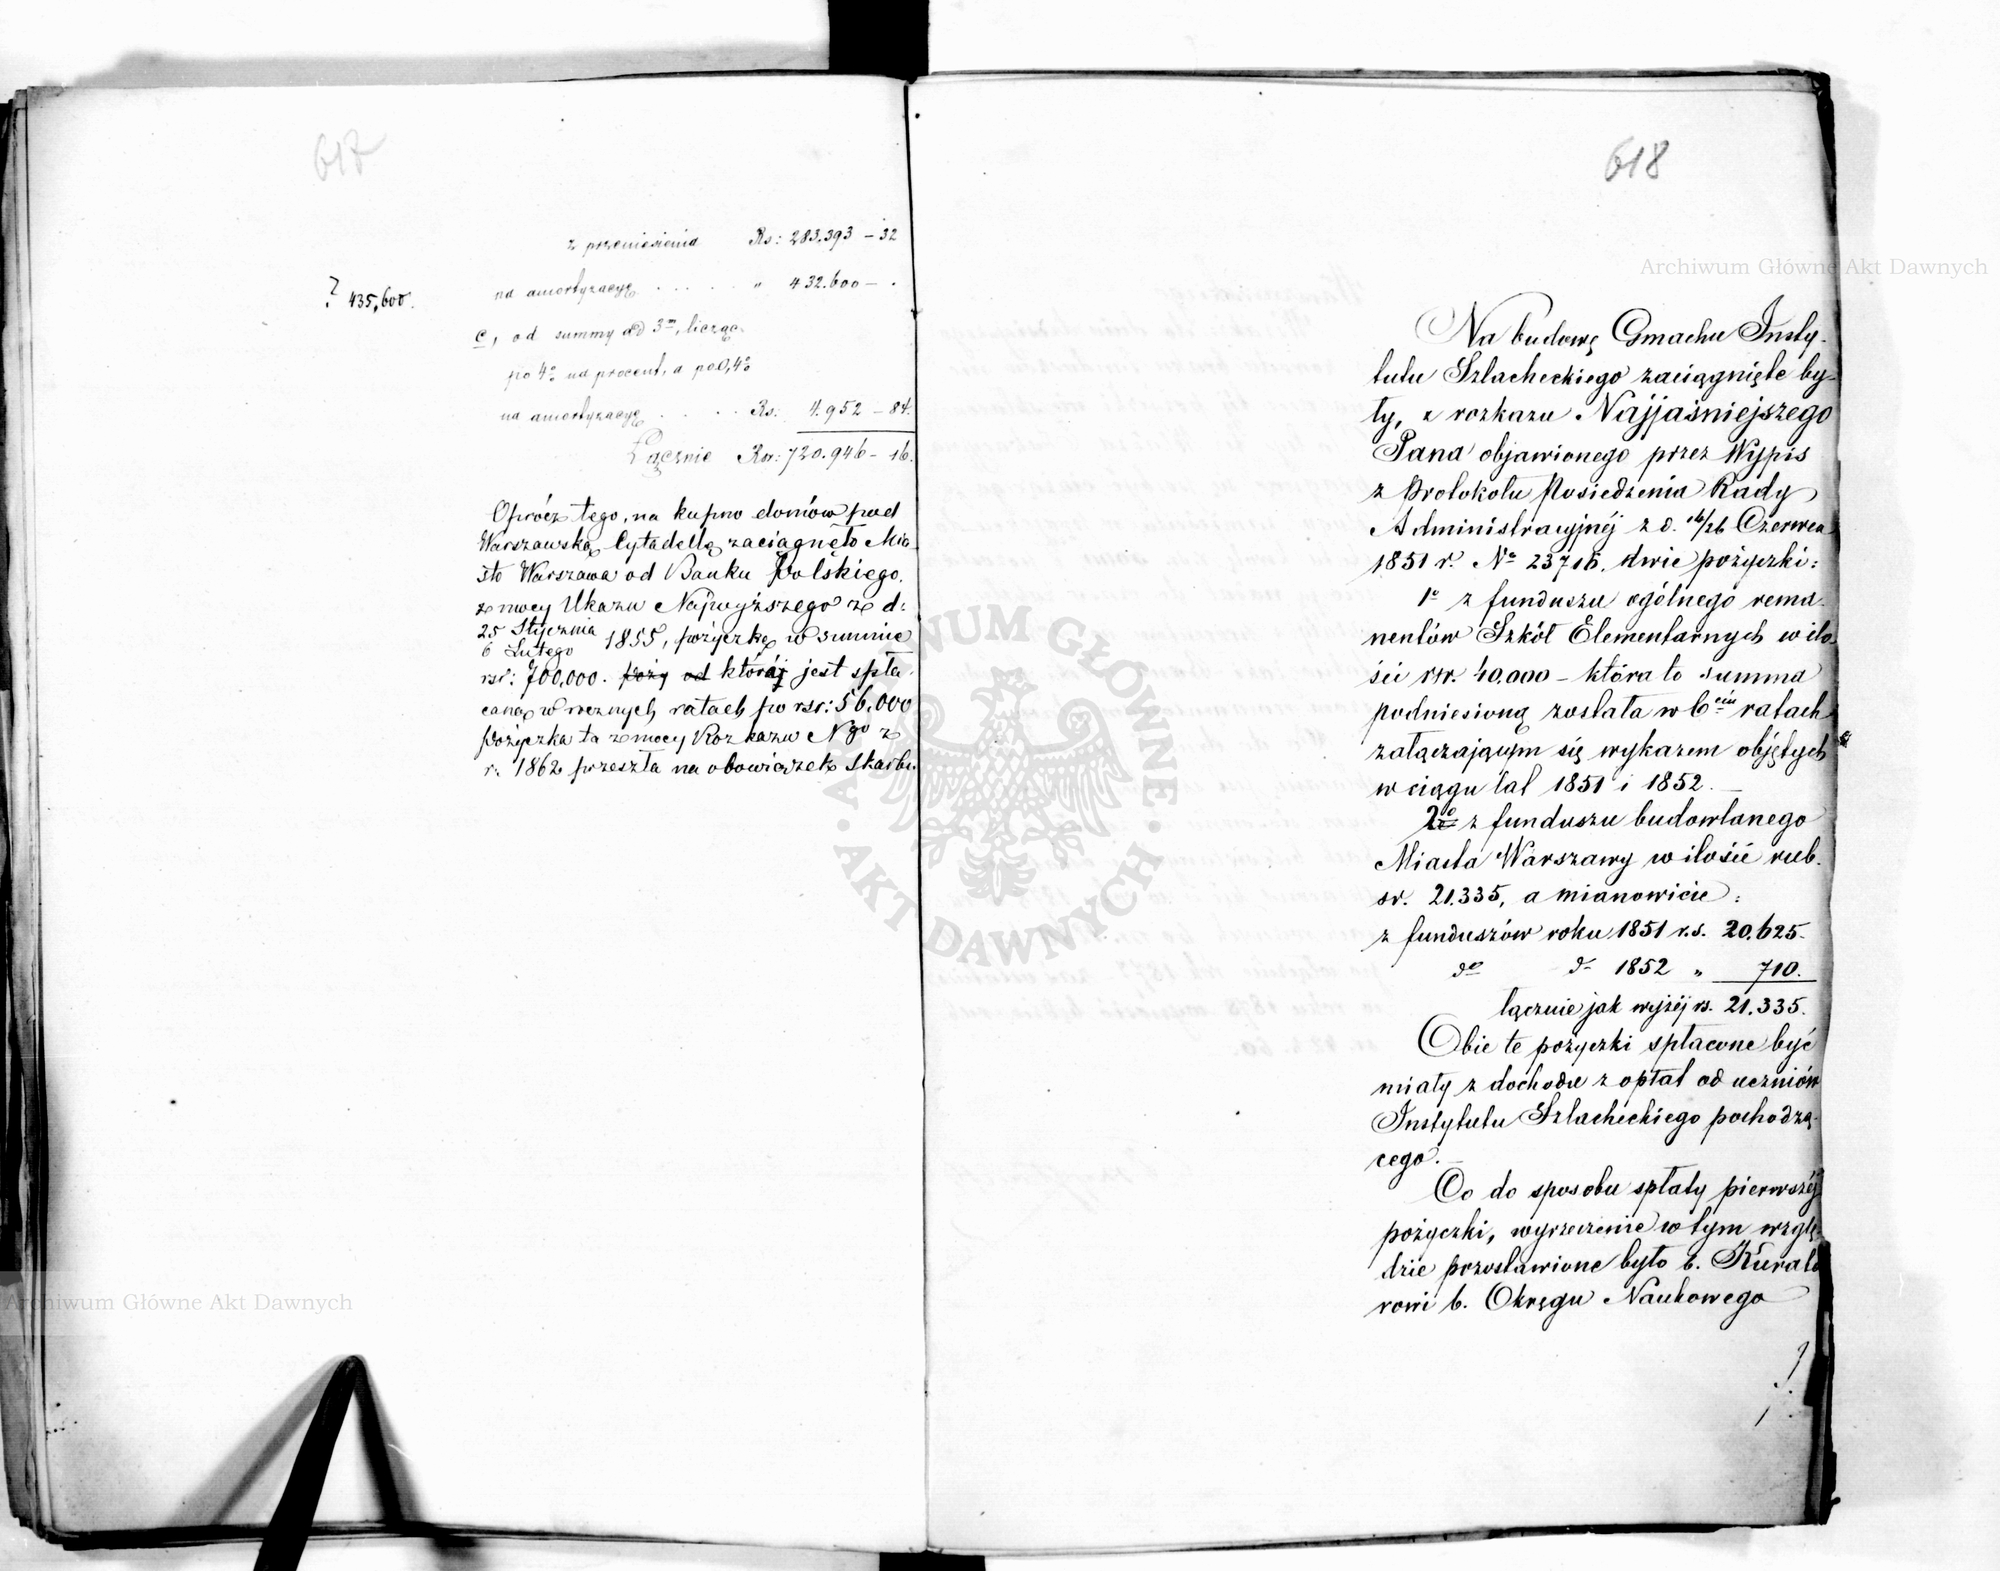 617
z przeniesienia Rs: 283,393 – 32
? 435,600.
na amortyzacyę . . . . . „ 432.600 – .
c, od summy ad 3m, licząc
po 4% na procent, a po 0,4%
na amortyzacyę . . . . Rs: 4.952 – 84.
Łącznie Rsr: 720.946 – 16.
Oprócz tego, na kupno domów pod
Warszawską Cytadellą zaciągnęło Mia
sto Warszawa od Banku Polskiego,
z mocy Ukazu Najwyższego z d:
25 Stycznia
6 Lutego 1855, pożyczkę w summie
rsr: 700,000. poży od któréj jest spła
caną w rocznych ratach po rsr: 56,000
Pożyczka ta z mocy Rozkazu Ngo z
r. 1862 przeszła na obowiązek Skarbu.
618
Na budowę Gmachu Insty-
tutu Szlacheckiego zaciągnięte by-
ły, z rozkazu Najjaśniejszego
Pana objawionego przez Wypis
z Protokołu Posiedzenia Rady
Administracyjnéj z d. 14/26 Czerwca
1851 r. No 23716. dwie pożyczki:
1o z funduszu ogólnego rema-
nentów Szkół Elementarnych w ilo-
ści rsr. 40.000 – która to summa
podniesioną została w 6ciu ratach
załączającym się wykazem objętych
w ciągu lat 1851 i 1852. –
2o z funduszu budowlanego
Miasta Warszawy w ilości rub.
sr. 21.335, a mianowicie:
z funduszów roku 1851 r.s. 20.625.
do do 1852 „ 710.
łącznie jak wyżéj rs. 21.335.
Obie te pożyczki spłacone być
miały z dochodu z opłat od uczniów
Instytutu Szlacheckiego pochodzą-
cego. –
Co do sposobu spłaty pierwszéj
pożyczki, wyrzeczenie w tym wzglę-
dzie pozostawione było b. Kurato
rowi b. Okręgu Naukowego
Archiwum Główne Akt Dawnych
Archiwum Główne Akt Dawnych
ARCHIWUM GŁÓWNE · AKT DAWNYCH ·